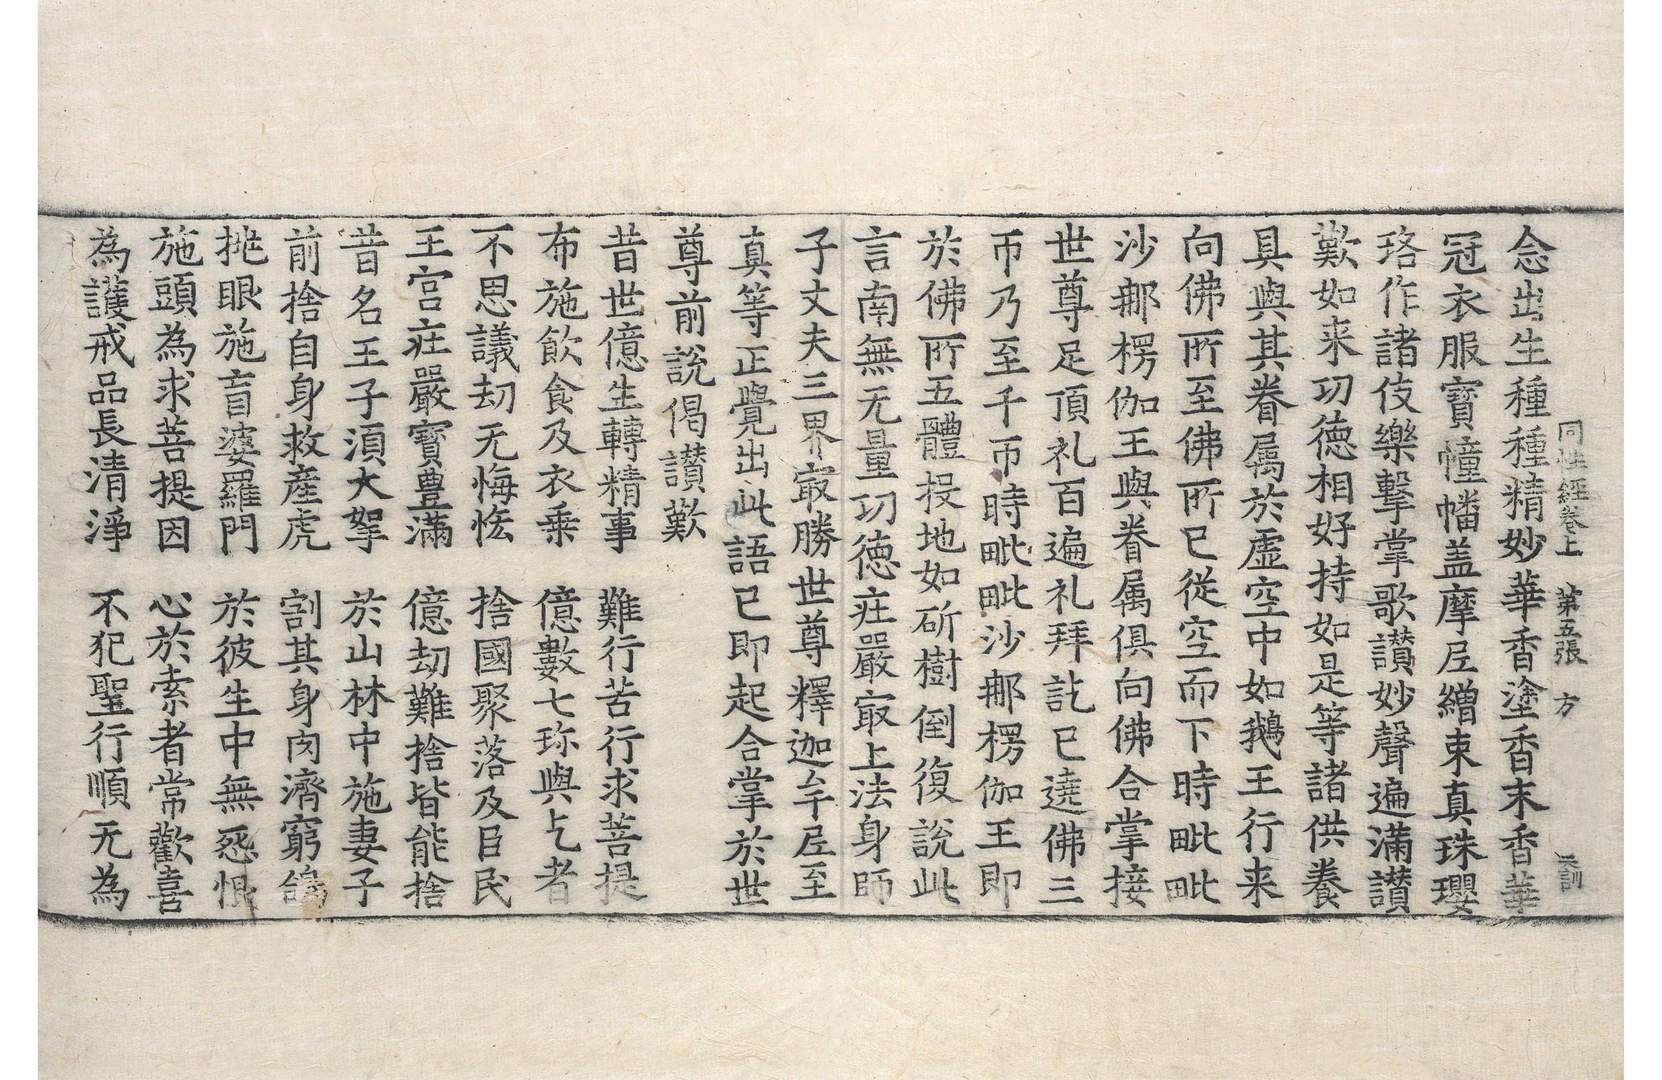 同性經卷上 第五張 方
念出生種種精妙華香塗香末香華
冠衣服寳幢幡盖摩𡰱繒束真珠瓔
珞作諸伎樂擊掌歌讃妙聲遍滿讃
歎如来㓛徳相好持如是等諸供養
具與其眷属於虛空中如鵝王行来
向佛所至佛所已従空而下時毗毗
沙郍楞伽王與眷属俱向佛合掌接
世尊足頂礼百遍礼拜訖已遶佛三
帀乃至千帀時毗毗沙郍楞伽王即
於佛所五體投地如斫樹倒復說此
言南無无量㓛徳庄嚴㝡上法身師
子丈夫三界㝡勝世尊釋迦牟𡰱至
真等正覺出此語已即起合掌於世
尊前說偈讃歎
昔世億生轉精事 難行苦行求菩提
布施飲食及衣乘 億數七珎與乞者
不思議劫无悔恡 捨國聚落及臣民
王宫庄嚴寶豊滿 億劫難捨皆能捨
昔名王子湏大拏 於山林中施妻子
前捨自身救產虎 割其身肉濟窮鴿
挑眼施盲婆羅門 於彼生中無𢙣恨
施頭為求菩提因 心於索者常歡喜
為護戒品長清淨 不犯聖行順无為